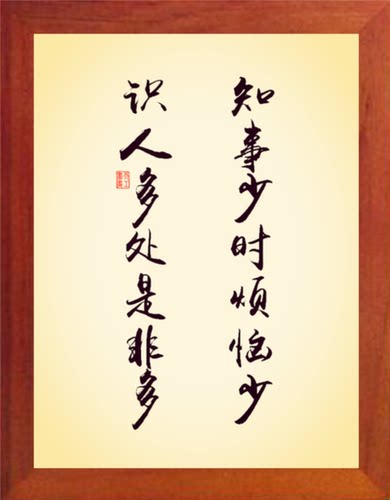 知事少时烦恼少
识人多处是非多